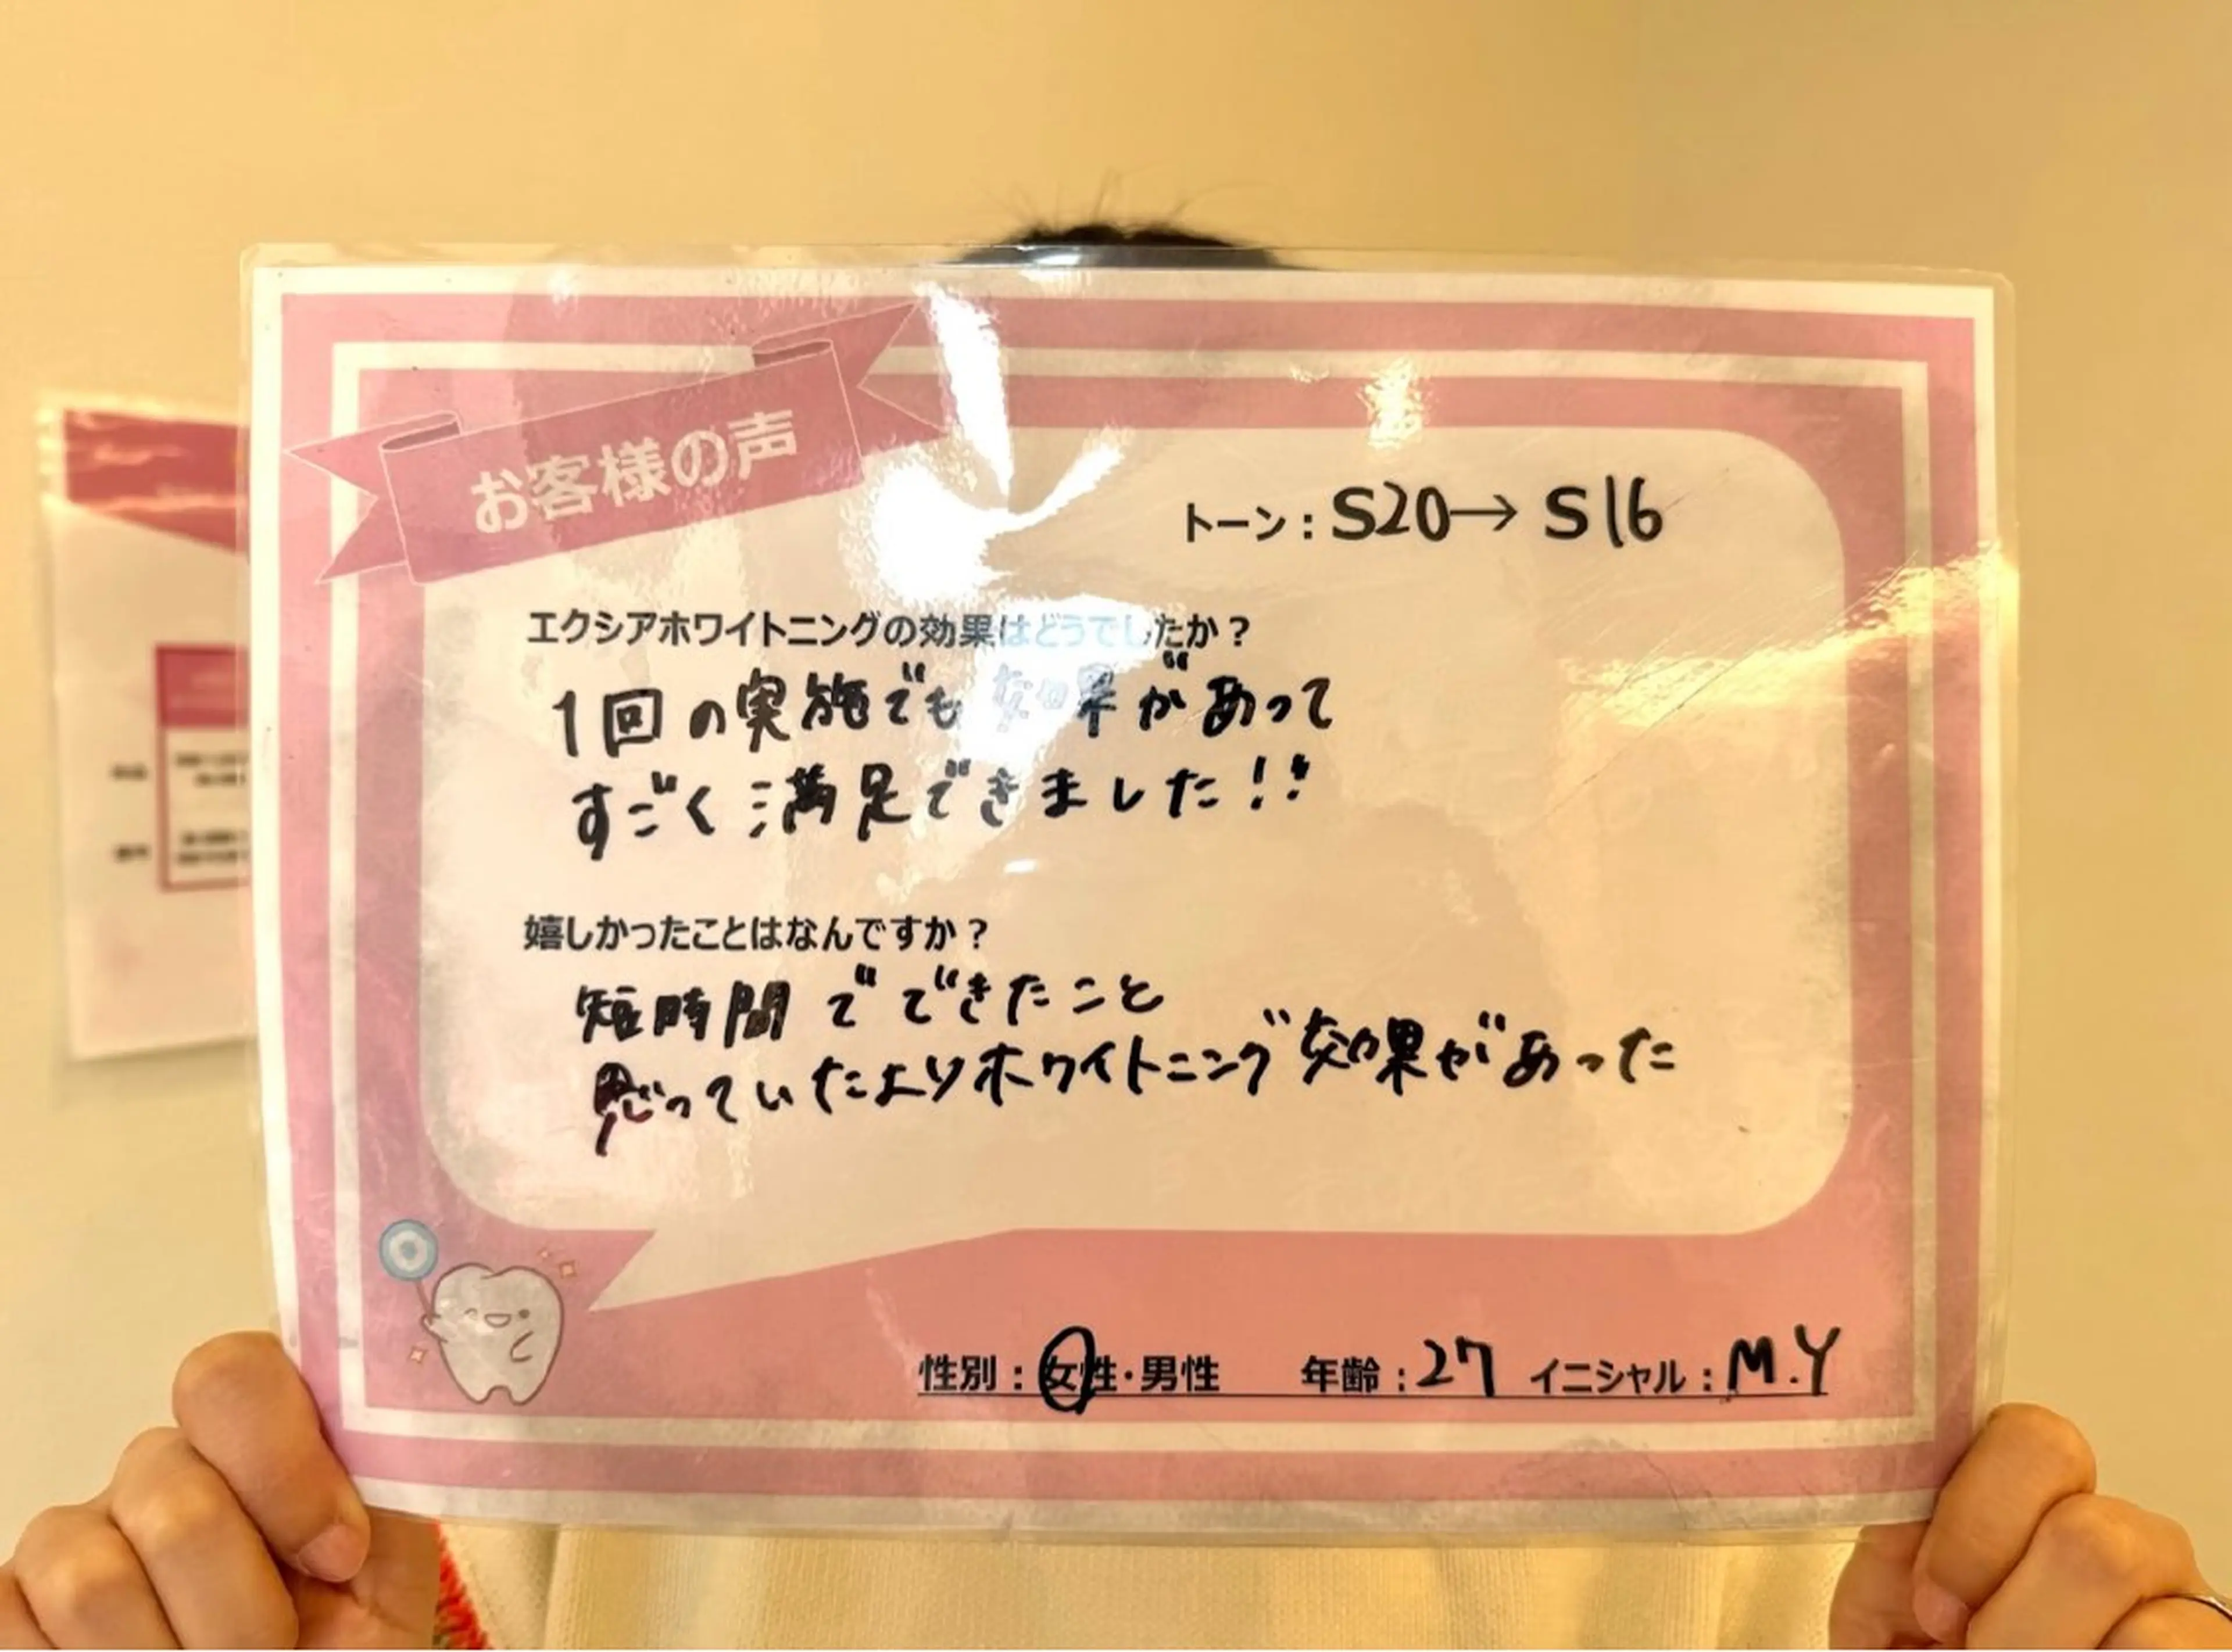 お客様の声
トーン：S20→S16
エクシアホワイトニングの効果はどうでしたか？
1回の実施でも効果があって
すごく満足できました！！
嬉しかったことはなんですか？
短時間でできたこと
思っていたよりホワイトニング効果があった
性別：女性・男性 年齢：27 イニシャル：M.Y